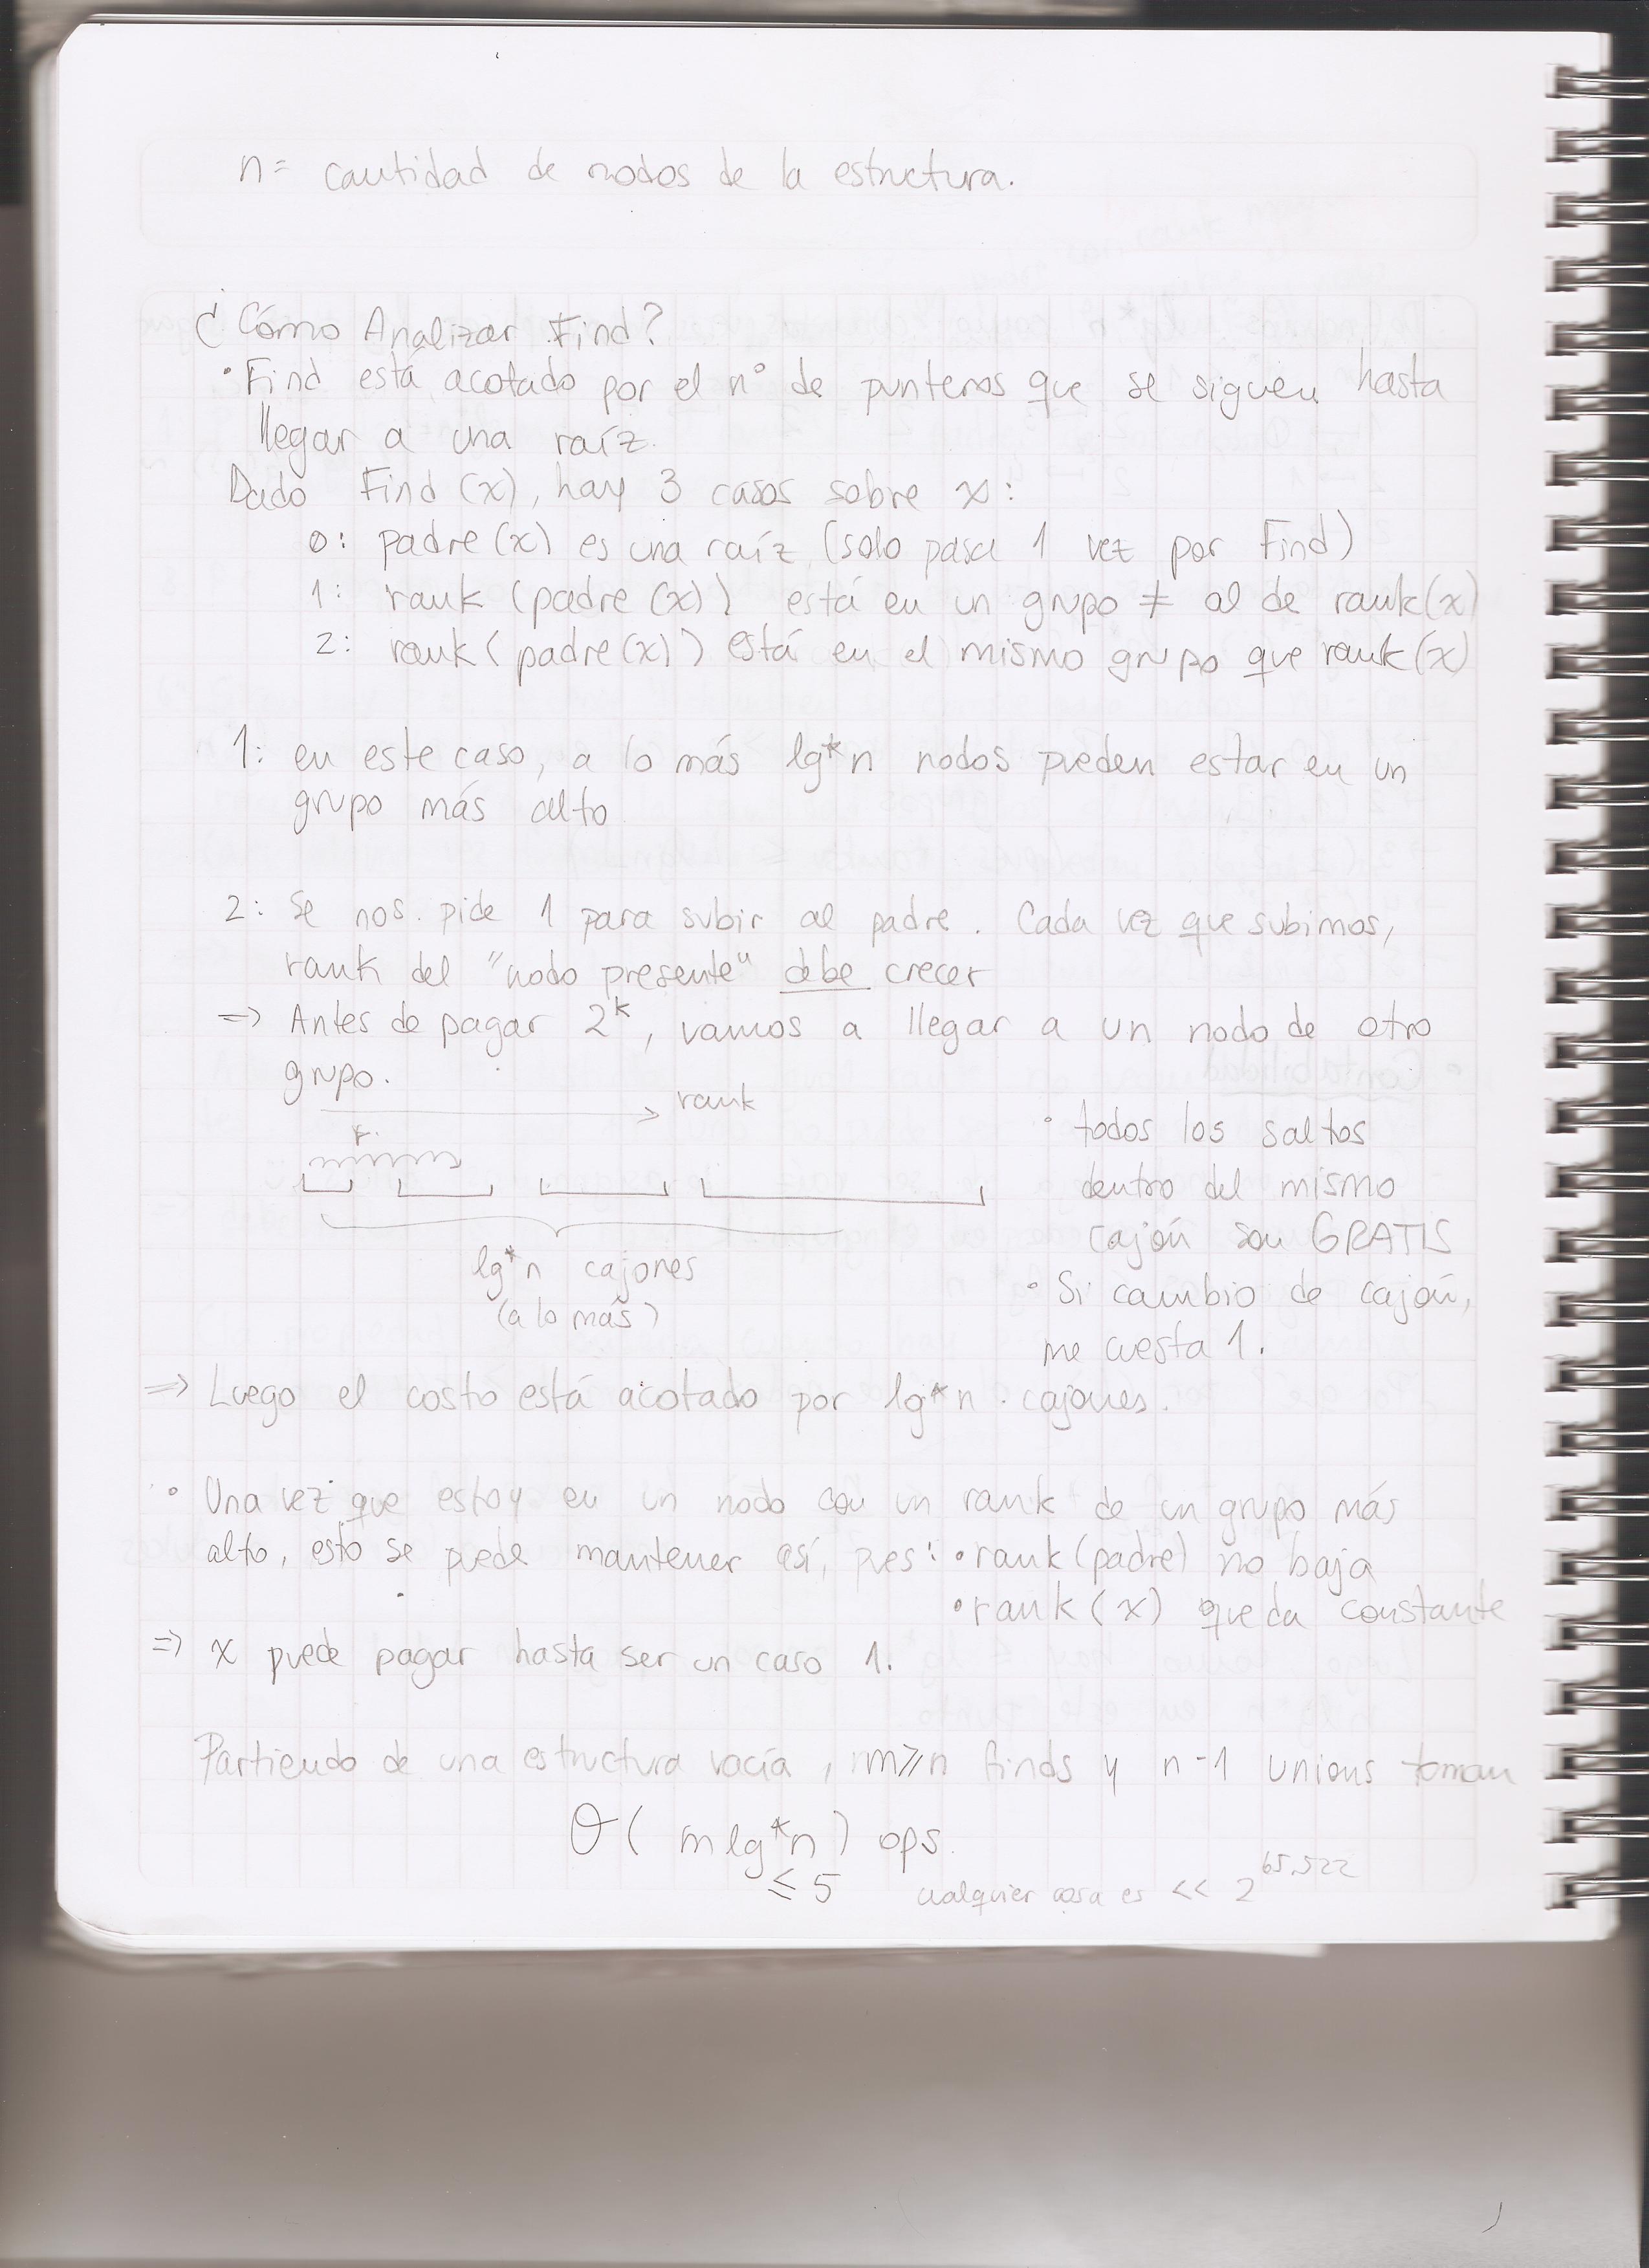 n = cantidad de nodos de la estructura.
¿Cómo Analizar Find?
• Find está acotado por el n° de punteros que se siguen hasta
llegar a una raíz.
Dado Find (x), hay 3 casos sobre x:
0: padre (x) es una raíz (solo pasa 1 vez por Find)
1: rank (padre (x)) está en un grupo ≠ al de rank(x)
2: rank (padre (x)) está en el mismo grupo que rank (x)
1: en este caso, a lo más lg*n nodos pueden estar en un
grupo más alto
2: Se nos pide 1 para subir al padre. Cada vez que subimos,
rank del "nodo presente" debe crecer
=> Antes de pagar 2^k, vamos a llegar a un nodo de otro
grupo.
rank
lg*n cajones
(a lo más)
• todos los saltos
dentro del mismo
cajón son GRATIS
• Si cambio de cajón,
me cuesta 1.
=> Luego el costo está acotado por lg*n cajones.
• Una vez que estoy en un nodo con un rank de un grupo más
alto, esto se puede mantener así, pues: • rank (padre) no baja
• rank (x) queda constante
=> x puede pagar hasta ser un caso 1.
Partiendo de una estructura vacía, m ≥ n finds y n-1 unions toman
O( m lg*n ) ops.
≤ 5 cualquier cosa es << 2^65.522